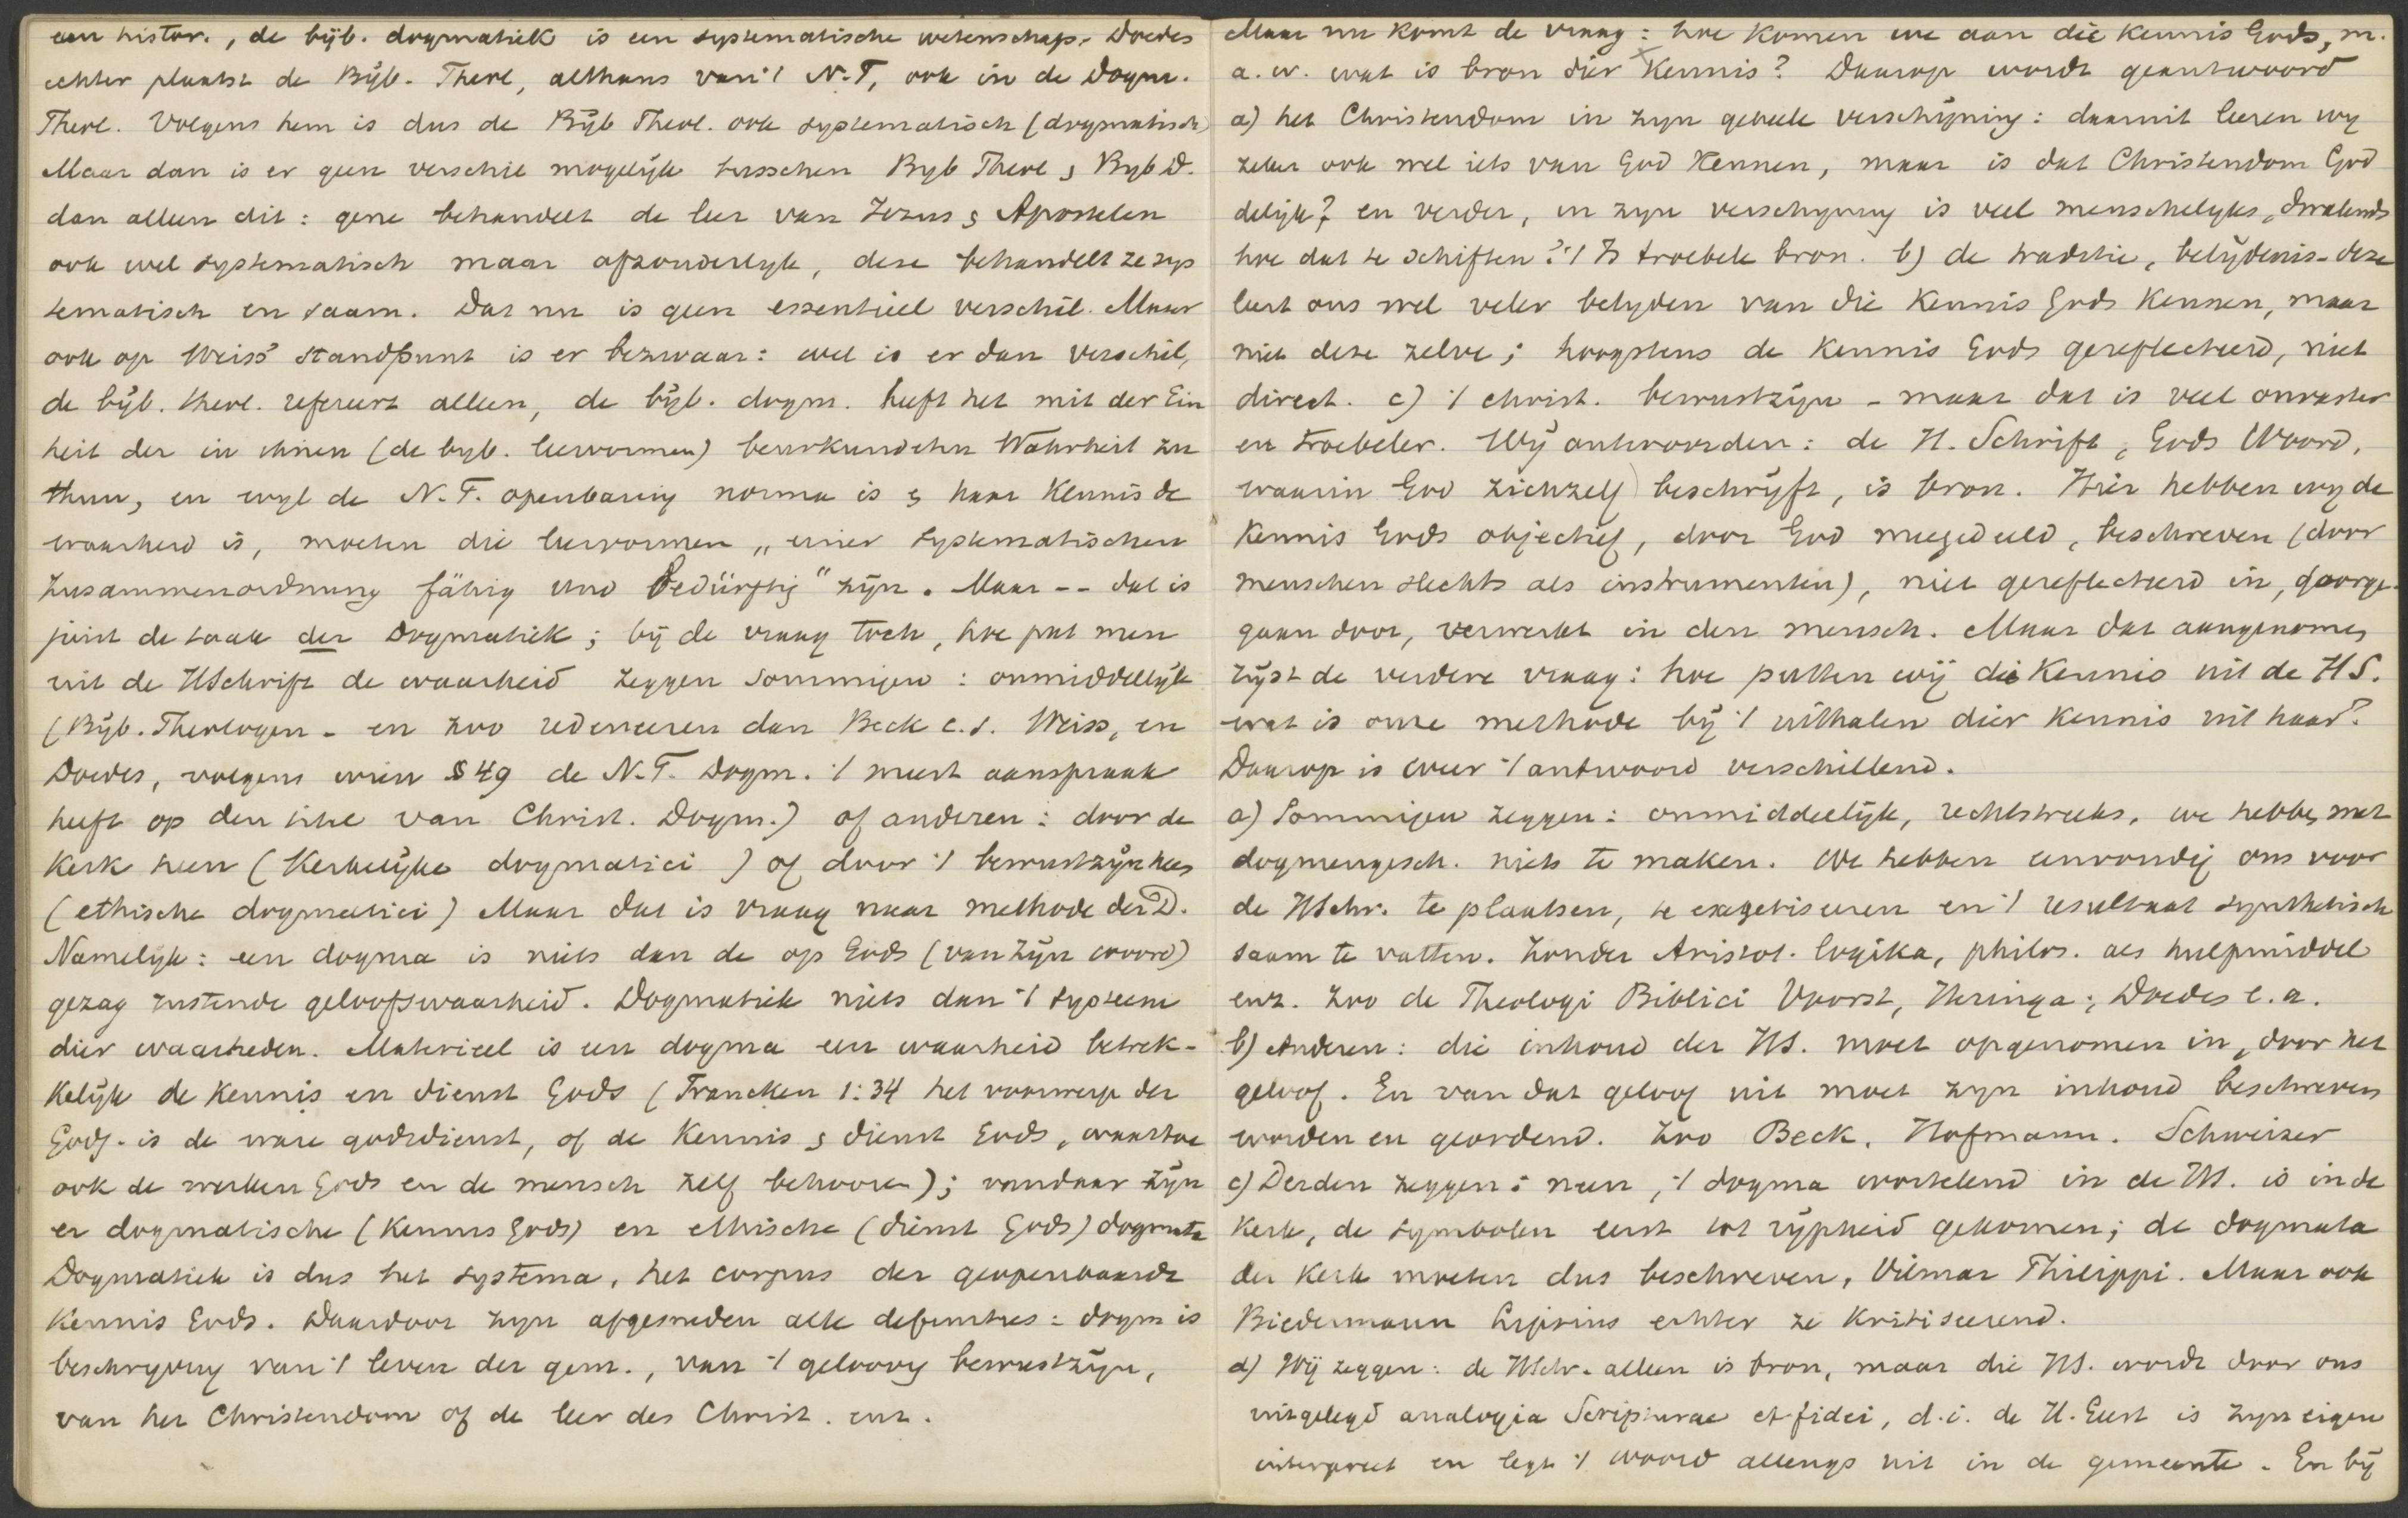 een histor., de bijb. dogmatiek is een systematische wetenschap. Doedes
echter plaatst de Bijb. Theol, althans van 't N.T, ook in de Dogm.
Theol. Volgens hem is dus de Bijb Theol. ook systematisch (dogmatisch)
Maar dan is er geen verschil mogelijk tusschen Byb Theol & Byb D.
dan alleen dit: gene behandelt de leer van Jezus & Apostelen
ook wel systematisch maar afzonderlyk, deze behandelt ze sys
tematisch en saam. Dat nu is geen essentieel verschil. Maar
ook op Weiss' standpunt is er bezwaar: wel is er dan verschil,
de bijb. theol. refereert alleen, de bijb. dogm. heeft het mit der Ein
heit der in ihnen (de byb. leervormen) beurkundeten Wahrheit zu
thun, en wyl de N.T. openbaring norma is & haar Kennis de
waarheid is, moeten die leervormen „einer systematischen
Zusammenordnung fähig und bedürftig" zijn. Maar -- dat is
juist de taak der Dogmatiek; bij de vraag toch, hoe put men
uit de HSchrift de waarheid zeggen sommigen: onmiddellijk
(Bijb. Theologen - en zoo redeneeren dan Beck c.s. Weiss, en
Doedes, volgens wien § 49 de N.T. Dogm. 't meest aanspraak
heeft op den titel van Christ. Dogm.) of anderen: door de
Kerk heen (Kerkelijke dogmatici) of door 't bewustzijn heen
(ethische dogmatici) Maar dat is vraag naar methode der D.
Namelijk: een dogma is niets dan de op Gods (van Zijn woord)
gezag rustende geloofswaarheid. Dogmatiek niets dan 't systeem
dier waarheden. Materieel is een dogma een waarheid betrek-
kelijk de Kennis en dienst Gods (Francken 1:34 het voorwerp der
Godg. is de ware godsdienst, of de Kennis & dienst Gods, waartoe
ook de werken Gods en de mensch zelf behooren); vandaar zijn
er dogmatische (Kennis Gods) en ethische (dienst Gods) dogmata
Dogmatiek is dus het systema, het corpus der geopenbaarde
Kennis Gods. Daardoor zyn afgesneden alle definities: dogm is
beschryving van 't leven der gem., van 't geloovig bewustzijn,
van het Christendom of de leer des Christ. enz.
Maar nu komt de vraag: hoe Komen we aan die Kennis Gods, m.
a.w. wat is bron dier Kennis? Daarop wordt geantwoord
a) het Christendom in zyn geheele verschijning: daaruit leeren wy
zeker ook wel iets van God Kennen, maar is dat Christendom God
delijk? en verder, in zyn verschyning is veel menschelyks, dwalends
hoe dat te schiften? 't Is troebele bron. b) de traditie, belijdenis - deze
leert ons wel veler belyden van die Kennis Gods Kennen, maar
niet deze zelve; hoogstens de Kennis Gods gereflecteerd, niet
direct. c) 't christ. bewustzijn - maar dat is veel onvaster
en troebeler. Wij antwoorden: de H. Schrift, Gods Woord,
waarin God zichzelf beschrijft, is bron. Hier hebben wy de
Kennis Gods objectief, door God meegedeeld, beschreven (door
menschen slechts als instrumenten), niet gereflecteerd in, doorge-
gaan door, verwerkt in den mensch. Maar dat aangenomen,
rijst de verdere vraag: hoe putten wij die Kennis uit de HS.
wat is onze methode bij 't uithalen dier Kennis uit haar?
Daarop is weer 't antwoord verschillend.
a) Sommigen zeggen: onmiddellijk, rechtstreeks, we hebben met
dogmengesch. niets te maken. We hebben eenvoudig ons voor
de HSchr. te plaatsen, te exegetiseeren en 't resultaat synthetisch
saam te vatten. Zonder Aristot. logika, philos. als hulpmiddel
enz. Zoo de Theologi Biblici Voorst, Heringa, Doedes e.a.
b) Anderen: die inhoud der HS. moet opgenomen in, door het
geloof. En van dat geloof uit moet zyn inhoud beschreven
worden en geordend. Zoo Beck. Hofmann. Schweizer
c) Derden zeggen: neen, 't dogma wortelend in de HS. is in de
Kerk, de symbolen eerst tot rijpheid gekomen; de dogmata
der Kerk moeten dus beschreven, Vilmar Philippi. Maar ook
Biedermann Lipsius echter ze kritiseerend.
d) Wij zeggen: de HSchr. alleen is bron, maar die HS. wordt door ons
uitgelegd analogia Scripturae et fidei, d.i. de H. Geest is zyn eigen
interpreet en legt 't woord allengs uit in de gemeente. En bij